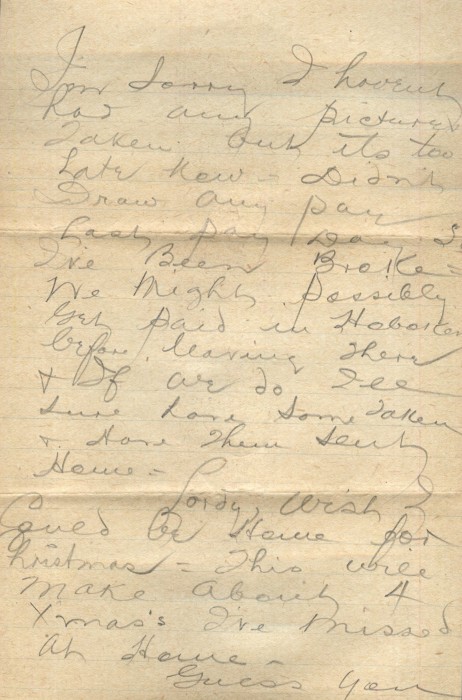 I'm Sorry I havent
had any pictures
Taken but its too
Late Now - Didn't
Draw any pay
Last pay Day. So
I've Been Broke =
We Might possibly
Get paid in Hoboken
before leaving There
+ If we do I'll
sure have some Taken
+ Have Them sent
Home =
Lordy, wish I
Could be Home for
Christmas = This will
Make About 4
X'mas's I've Missed
At Home -
Guess you